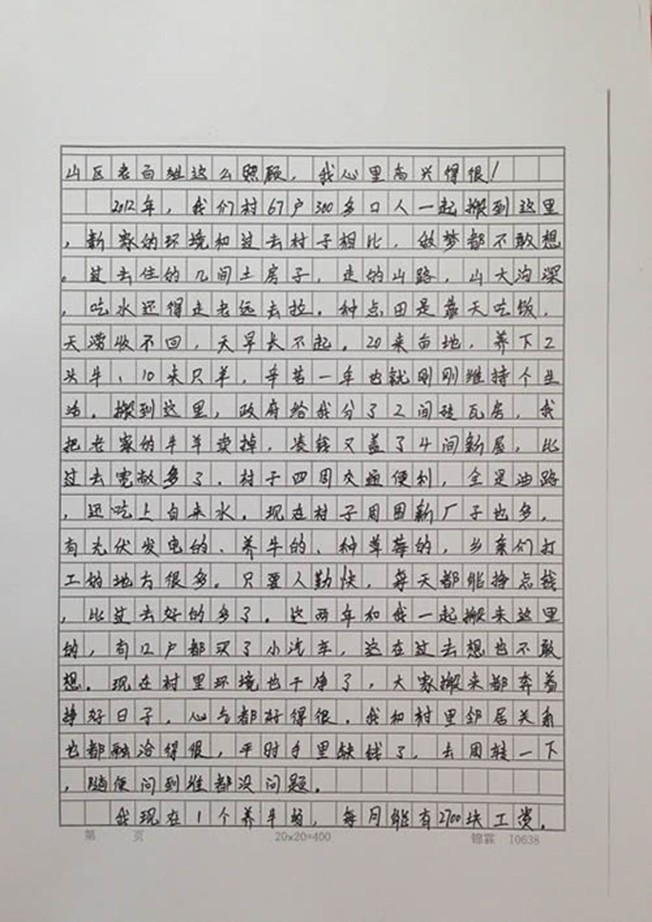 山区老百姓这么照顾，我心里高兴得很！
2012年，我们村67户300多口人一起搬到这里
，新家的环境和过去村子相比，做梦都不敢想
。过去住的几间土房子，走的山路，山大沟深
，吃水还得走老远去拉。种点田是靠天吃饭，
天涝收不回，天旱长不起。20来亩地，养下2
头牛、10来只羊，辛苦一年也就刚刚维持个生
活。搬到这里，政府给我分了2间砖瓦房，我
把老家的牛羊卖掉，凑钱又盖了4间新屋，比
过去宽敞多了。村子四周交通便利，全是油路
，还吃上自来水。现在村子周围新厂子也多，
有光伏发电的、养牛的、种草莓的，乡亲们打
工的地方很多。只要人勤快，每天都能挣点钱
，比过去好的多了。这两年和我一起搬来这里
的，有12户都买了小汽车，这在过去想也不敢
想。现在村里环境也干净了，大家搬来都奔着
挣好日子，心气都好得很。我和村里邻居关系
也都融洽得很，平时手里缺钱了，去周转一下
，随便问到谁都没问题。
我现在1个养牛场，每月能有2700块工资。
第 页 20x20=400 锦霖 10638